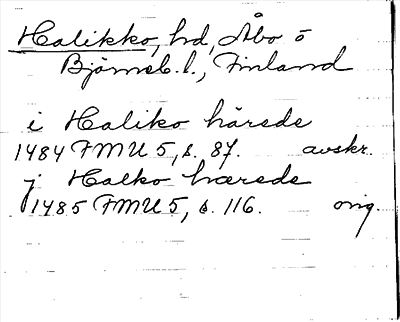 Halikko, hd, Åbo o
Björneb. l., Finland
i Haliko härede
1484 FMU 5, s. 87. avskr.
j Halko hærede
1485 FMU 5, s. 116. orig.